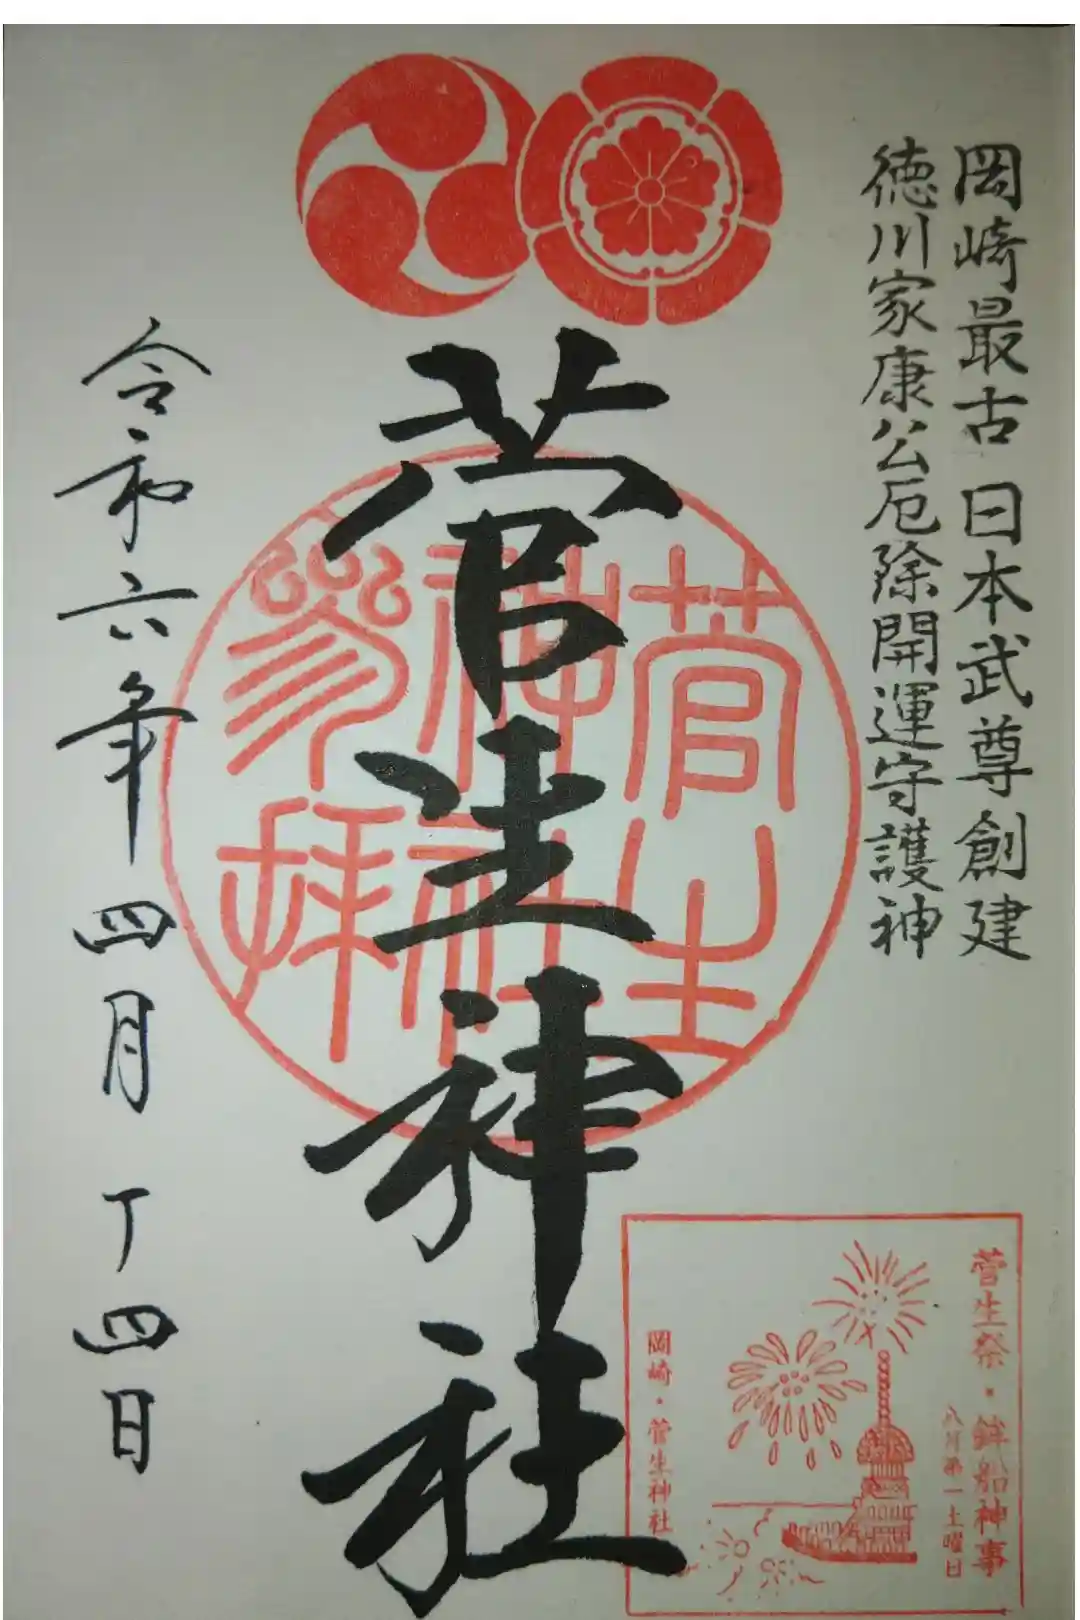 岡崎最古 日本武尊創建
徳川家康公厄除開運守護神
菅生神社
菅生
神社
参拝
令和六年四月丁四日
菅生祭・鉾船神事
八月第一土曜日
岡崎・菅生神社